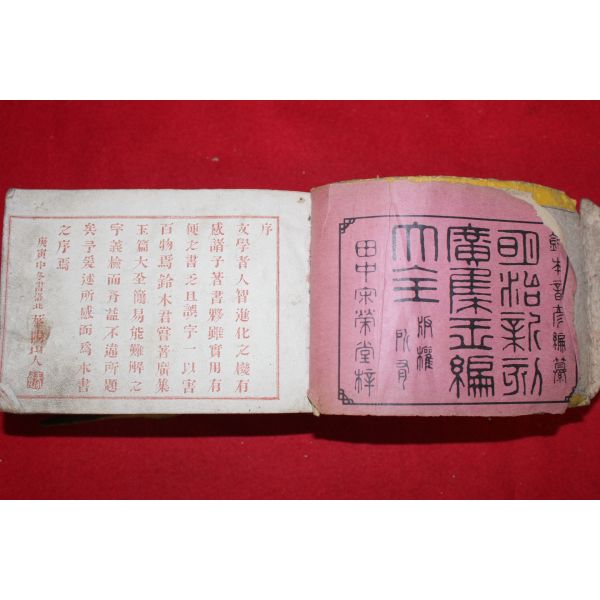 木音彦編
明治新刻
廣集玉編
大全
版權
所有
田中宋榮堂梓
序
文學者人智進化之機有
感諸子著書夥雖實用有
便之書乏且誤字一以害
百物焉鈴木君嘗著廣集
玉篇大全簡易能難解之
字義檢而音益不違所題
矣予爰述所感而爲本書
之序焉
庚寅中冬書洛北